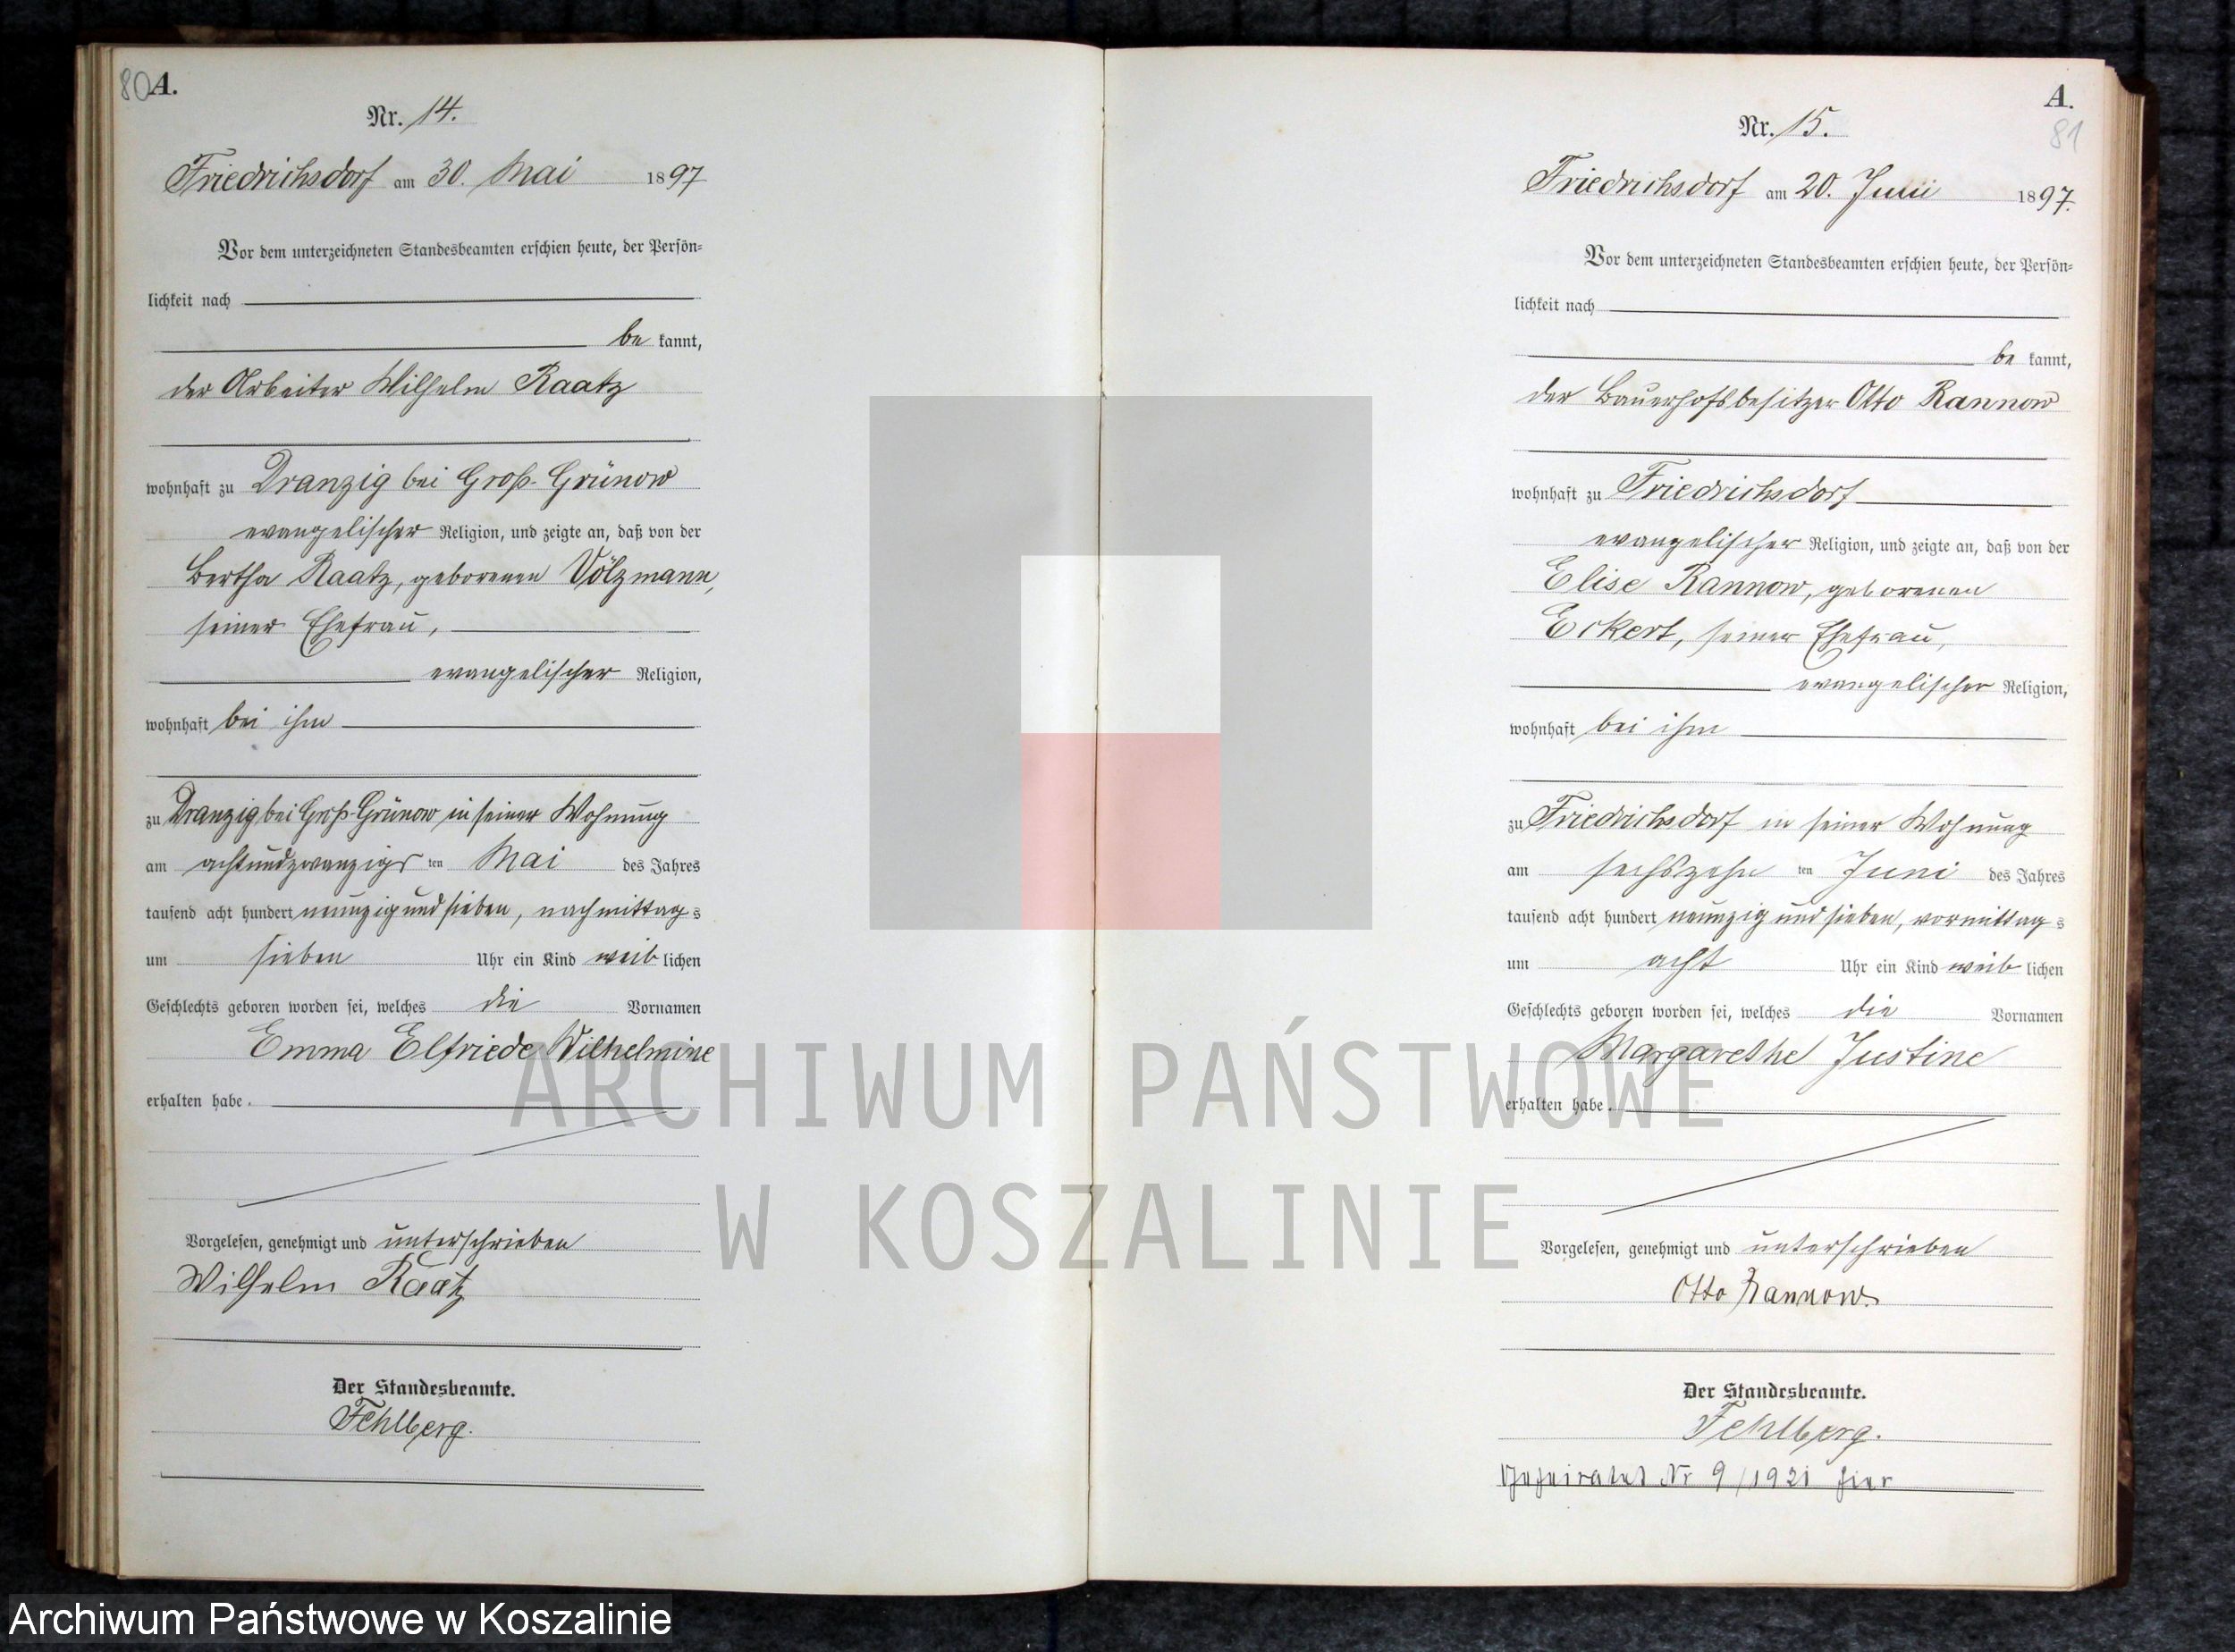 80 A.
Nr. 14.
Friedrichsdorf am 30. Mai 1897
Vor dem unterzeichneten Standesbeamten erschien heute, der Persön=
lichkeit nach
be kannt,
der Arbeiter Wilhelm Raatz
wohnhaft zu Dranzig bei Groß-Grünow
evangelischer Religion, und zeigte an, daß von der
Bertha Raatz, geborenen Völzmann,
seiner Ehefrau,
evangelischer Religion,
wohnhaft bei ihm
zu Dranzig bei Groß-Grünow in seiner Wohnung
am achtundzwanzigs ten Mai des Jahres
tausend acht hundert neunzig und sieben, nachmittag s
um sieben Uhr ein Kind weib lichen
Geschlechts geboren worden sei, welches die Vornamen
Emma Elfriede Wilhelmine
erhalten habe.
Vorgelesen, genehmigt und unterschrieben
Wilhelm Raatz
Der Standesbeamte.
Fehlberg.
A.
81
Nr. 15.
Friedrichsdorf am 20. Juni 1897.
Vor dem unterzeichneten Standesbeamten erschien heute, der Persön=
lichkeit nach
be kannt,
der Bauerhofsbesitzer Otto Rannow
wohnhaft zu Friedrichsdorf
evangelischer Religion, und zeigte an, daß von der
Elise Rannow, geborenen
Eckert, seiner Ehefrau,
evangelischer Religion,
wohnhaft bei ihm
zu Friedrichsdorf in seiner Wohnung
am sechszehn ten Juni des Jahres
tausend acht hundert neunzig und sieben, vormittag s
um acht Uhr ein Kind weib lichen
Geschlechts geboren worden sei, welches die Vornamen
Margarethe Justine
erhalten habe.
Vorgelesen, genehmigt und unterschrieben
Otto Rannow.
Der Standesbeamte.
Fehlberg.
Nr 9/1921 hier
ARCHIWUM PAŃSTWOWE
W KOSZALINIE
Archiwum Państwowe w Koszalinie